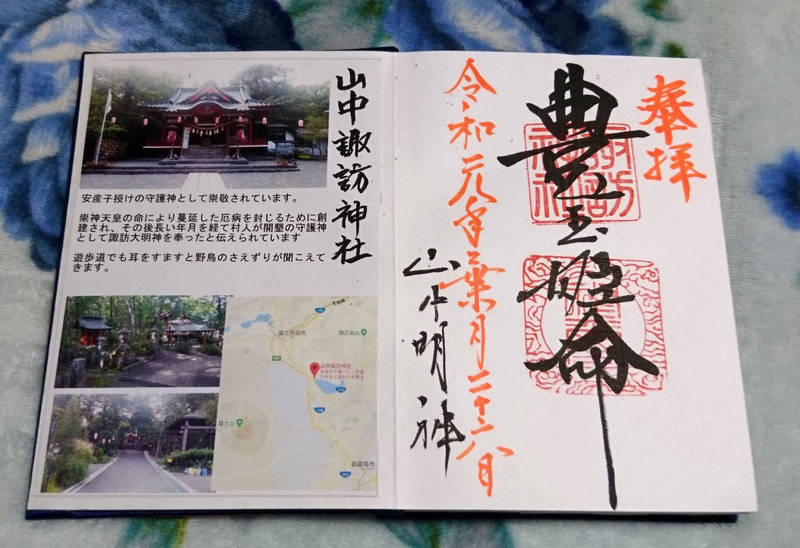 山中諏訪神社
安産子授けの守護神として崇敬されています。
崇神天皇の命により蔓延した厄病を封じるために創
建され、その後長い年月を経て村人が開墾の守護神
として諏訪大明神を奉ったと伝えられています
遊歩道でも耳をすますと野鳥のさえずりが聞こえて
きます。
富士吉田市
山中諏訪神社
富士山
御殿場市
奉拝
豊玉姫命
令和元年葉月二十六日
山中明神